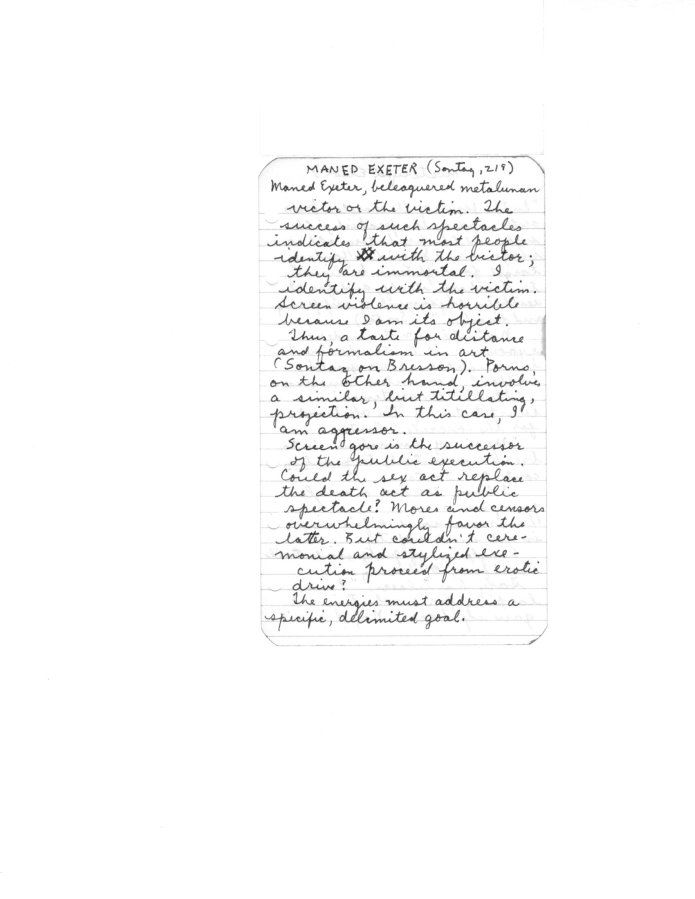 MANED EXETER (Sontag, 218)
Maned Exeter, beleaguered metalunan
victor or the victim. The
success of such spectacles
indicates that most people
identify with the victor;
they are immortal. I
identify with the victim.
Screen violence is horrible
because I am its object.
Thus, a taste for distance
and formalism in art
(Sontag on Bresson). Porno,
on the other hand, involves
a similar, but titillating,
projection. In this case, I
am aggressor.
Screen gore is the successor
of the public execution.
Could the sex act replace
the death act as public
spectacle? Mores and censors
overwhelmingly favor the
latter. But couldn't cere-
monial and stylized exe-
cution proceed from erotic
drive?
The energies must address a
specific, delimited goal.